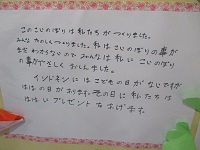 このこいのぼりは私たちがつくりました。
みんなたのしくつくりました。私はこいのぼりの事が
まだわからないのでみんなは私にこいのぼり
の事が正しく手伝いました。
インドネシアにはこどもの日がないですが
ははの日があります。その日に私たちは
ははいプレゼントをあげます。